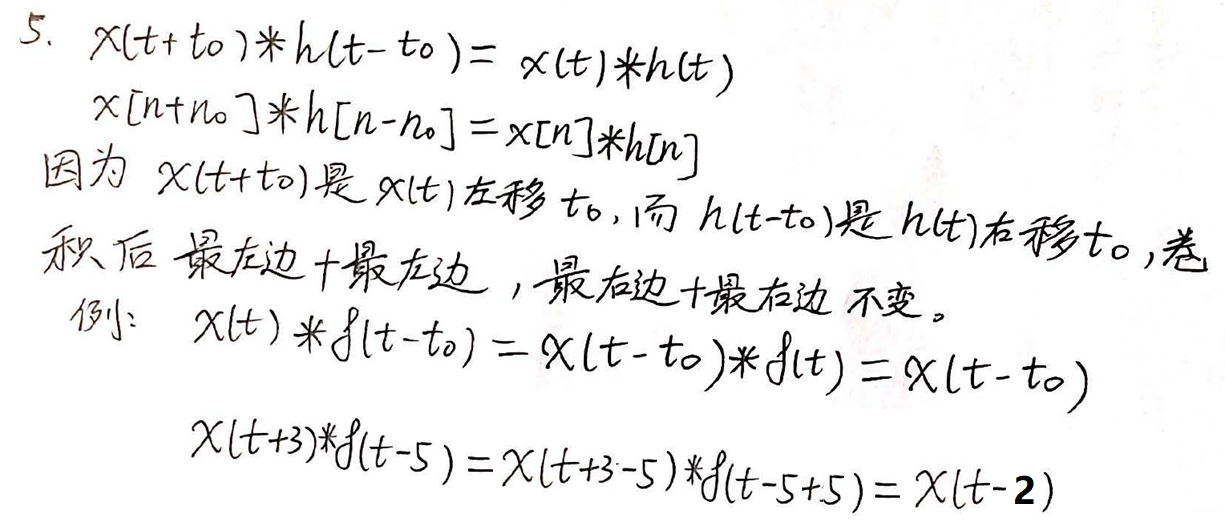 5. x(t+t₀)*h(t-t₀)= x(t)*h(t)
x[n+n₀]*h[n-n₀]=x[n]*h[n]
因为 x(t+t₀)是 x(t)左移 t₀,而 h(t-t₀)是 h(t)右移t₀,卷
积后 最左边+最左边,最右边+最右边 不变。
例: x(t)*δ(t-t₀)=x(t-t₀)*δ(t)=x(t-t₀)
x(t+3)*δ(t-5)=x(t+3-5)*δ(t-5+5)=x(t-2)